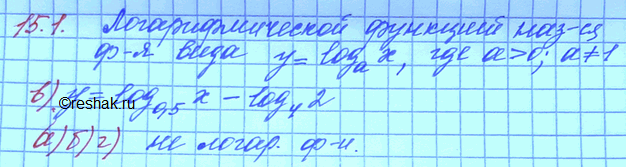 15.1. Логарифмической функций наз-ся
ф-я вида y = logₐ x, где a>0; a≠1
в) y = log₀,₅ x − log₄ 2
©reshak.ru
а) б) г) не логар. ф-и.